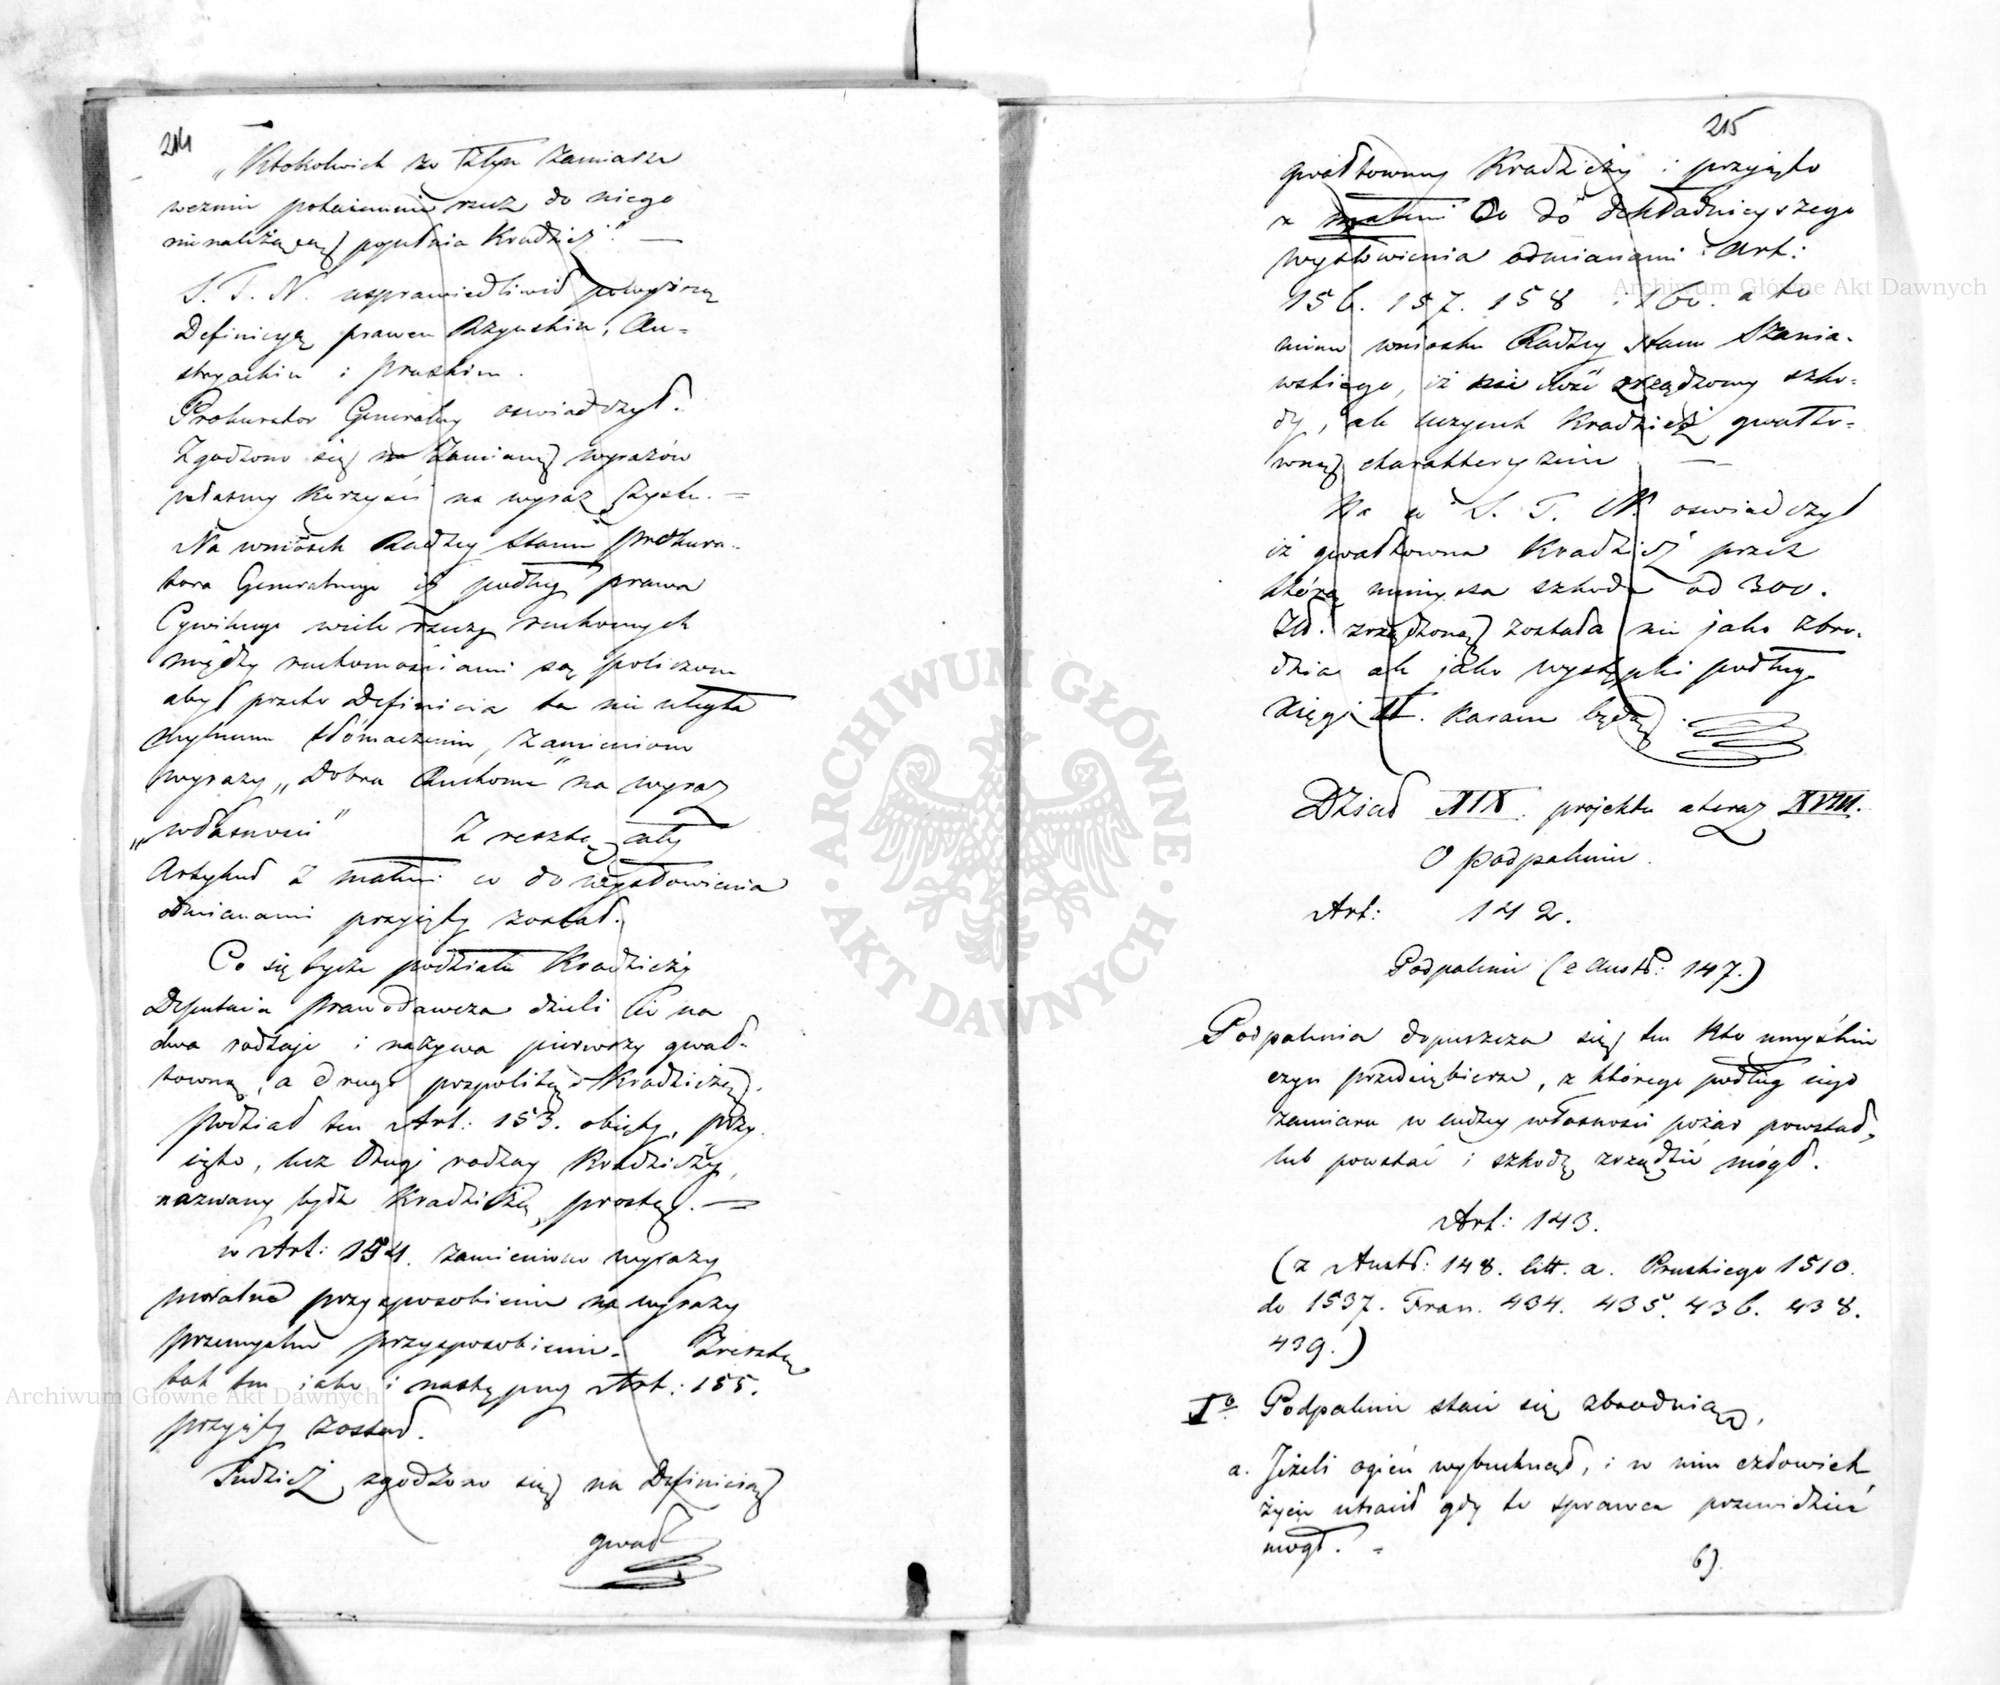 214
„Ktokolwiek ze złym zamiarze
weźmie potaiemnie rzecz do niego
nienależącą popełnia Kradzież". —
S. T. N. usprawiedliwił powyższą
Definicyą prawem Rzymskim, Au-
stryackim i Pruskim.
Prokurator Generalny oświadczył.
Zgodzono się na zamianę wyrazów
własney korzyści na wyraz zysku. —
Na wniosek Radzcy Stanu Prokura-
tora Generalnego iż podług prawa
Cywilnego wiele rzeczy ruchomych
między ruchomościami są policzone
aby przeto Definicia ta nie uległa
mylnemu tłómaczeniu, zamieniono
wyrazy „Dobra Ruchome" na wyraz
„własności" Z resztą cały
Artykuł z małemi co do wysłowienia
odmianami przyięty został.
Co się tycze podziału Kradzieży
Deputacia Prawodawcza dzieli ie na
dwa rodzaje i nazywa pierwszy gwał-
towną, a drugi pospolitą Kradzieżą.
Podział ten Art: 153. obięty, przy
ięto, lecz drugi rodzay Kradzieży,
nazwany będzie Kradzieżą prostą. —
w Art: 154. zamieniono wyrazy
moralne przysposobienie na wyrazy
przemysłne przysposobienie. Zresztą
tak ten iako i następny Art: 155.
przyięty został.
Tudzież zgodzono się na Definicią
gwał
215
gwałtowney Kradzieży i przyięto
z małemi co do dokładnieyszego
wysłowienia odmianami Art:
156. 157. 158 i 160. a to
mimo wniosku Radzcy Stanu Szania-
wskiego, iż nie ilość zrządzoney szko-
dy, ale uczynek Kradzież gwałto-
wną charakteryzuie —
Na co S. T. N. oświadczył
iż gwałtowna Kradzież przez
którą mnieysza szkoda od 300.
Złł. zrządzoną została nie jako zbro-
dnia ale jako występki podług
Xięgi II. karane będą.
Dział XIX. projektu a teraz XVIII.
O podpaleniu.
Art: 142.
Podpalenie (z Austr: 147.)
Podpalenia dopuszcza się ten kto umyślnie
czyn przedsiębierze, z którego podług iego
zamiaru w cudzey własności pożar powstał,
lub powstać i szkodę zrządzić mógł.
Art: 143.
(z Austr: 148. litt. a. Pruskiego 1510.
do 1537. Fran. 434. 435. 436. 438.
439.)
Iº Podpalenie staie się zbrodnią,
a. Jeżeli ogień wybuchnął, i w nim człowiek
życie utracił gdy to sprawca przewidzieć
mógł. -
b)
Archiwum Główne Akt Dawnych
Archiwum Główne Akt Dawnych
ARCHIWUM GŁÓWNE
AKT DAWNYCH